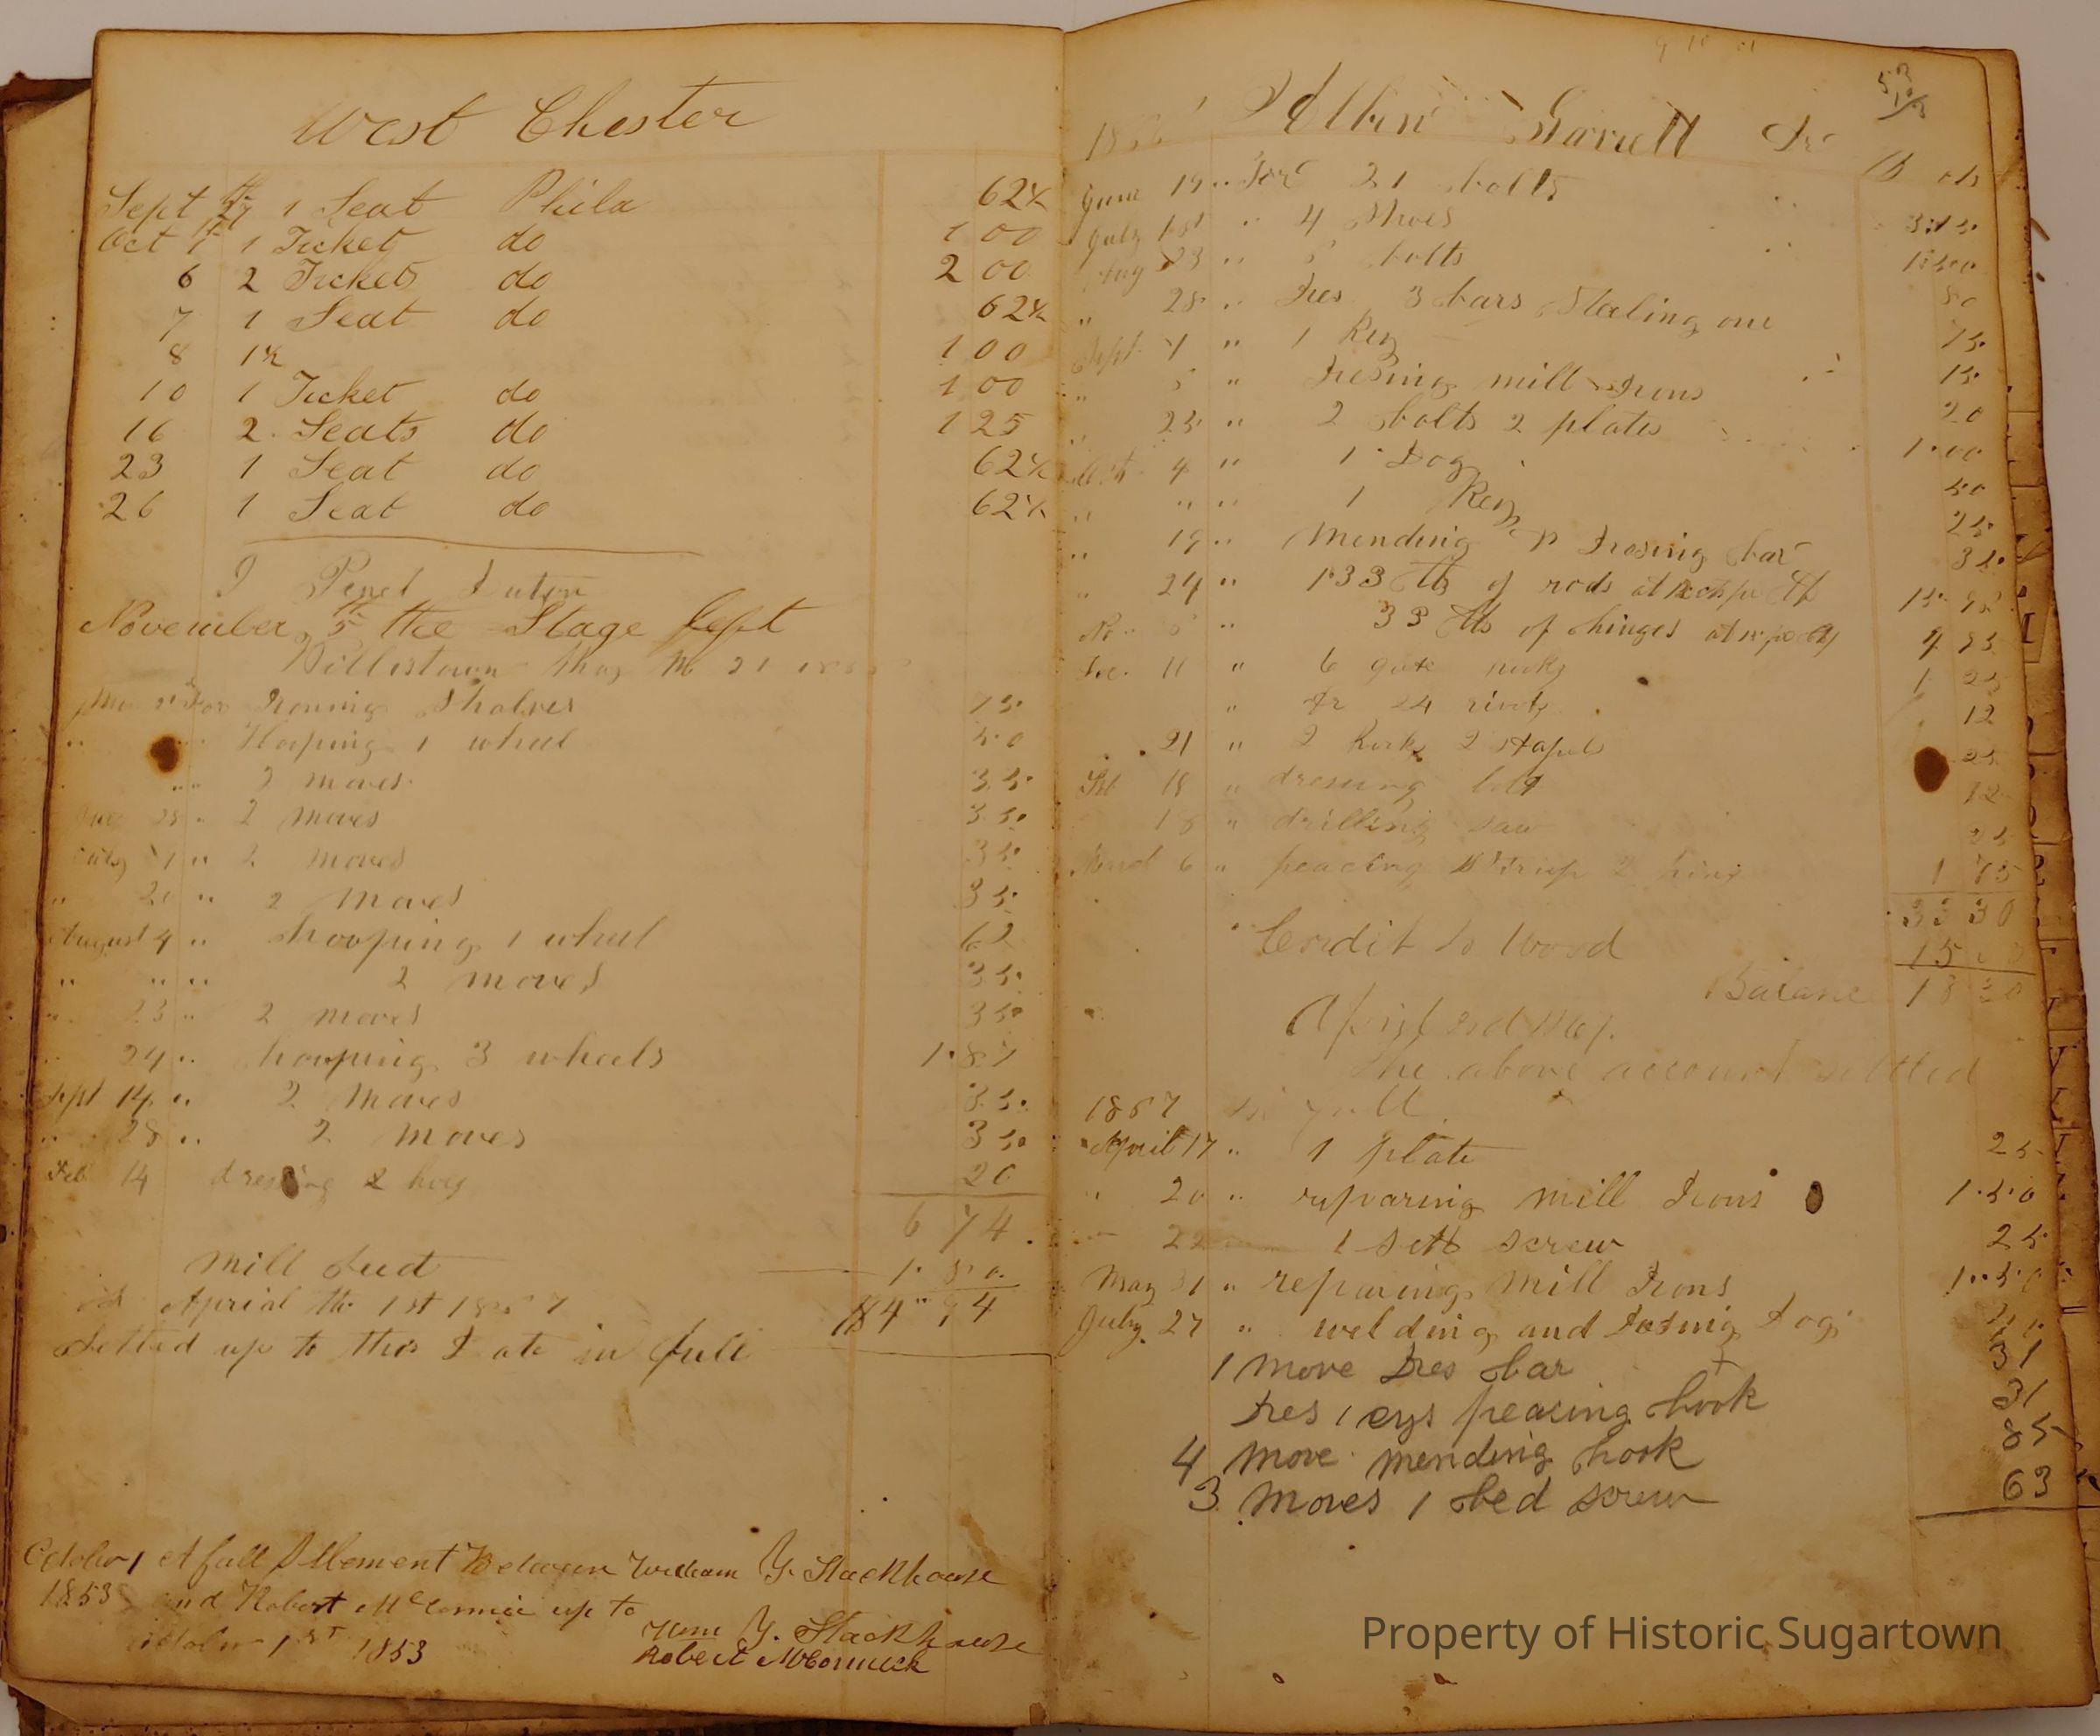 West Chester
Sept 27th 1 Seat Phila 62½
Oct 1st 1 Ticket do 1 00
6 2 Tickets do 2 00
7 1 Seat do 62½
8 1½ 1 00
10 1 Ticket do 1 00
16 2 Seats do 1 25
23 1 Seat do 62½
26 1 Seat do 62½
November 5th the Stage left
Willistown May
For Ironing Shalves 75
Hooping 1 wheel 50
2 moves 35
28 2 moves 35
2 moves 35
20 2 moves 35
August 4 hooping 1 wheel 62
2 moves 35
23 2 moves 35
24 hooping 3 wheels 1.87
Sept 14 2 moves 35
28 2 moves 35
Feb 14 dressing 2 hoes 20
6 74
mill feed 1.80
Aprial the 1st 1857 4 94
Settled up to this Date in full
October 1 A full Settlement Between William Y. Stackhouse
1853 and Robert McCormick up to
October 1st 1853
Wm Y. Stackhouse
Robert McCormick
1856 Albin Garrett Dr
D cts
June 19 For 21 bolts 3.15
July 18 4 Shoes 1.50
Aug 23 5 bolts 80
28 Dres 3 bars Steeling one 75
Sept 1 1 Key 15
5 Dresing mill Irons 20
25 2 bolts 2 plates 1.00
Oct 4 1 Dog 50
1 Key 25
19 Mending Dresing bar 35
24 133 lb of rods at
No 5 33 lbs of hinges at
Dec 11 6 gate hooks 1 25
24 rivets 12
21 2 hooks 2 stapels 25
Feb 18 dressing bolt 12
18 drilling saw 25
March 6 peacing Stirup 2 1 75
33 30
Credit to Wood 15 00
Balance 18 30
April 2nd 1857
The above account settled
in full
1857
April 17 1 plate 25
20 reparing mill Irons 1.50
22 1 sett screw 25
May 31 reparing mill Irons 1.50
July 27 welding and Dresing Dogs
1 move Dres bar 31
Dres 1 eys peacing hook 31
4 move mending hook 85
3 moves 1 bed screw 63
Property of Historic Sugartown